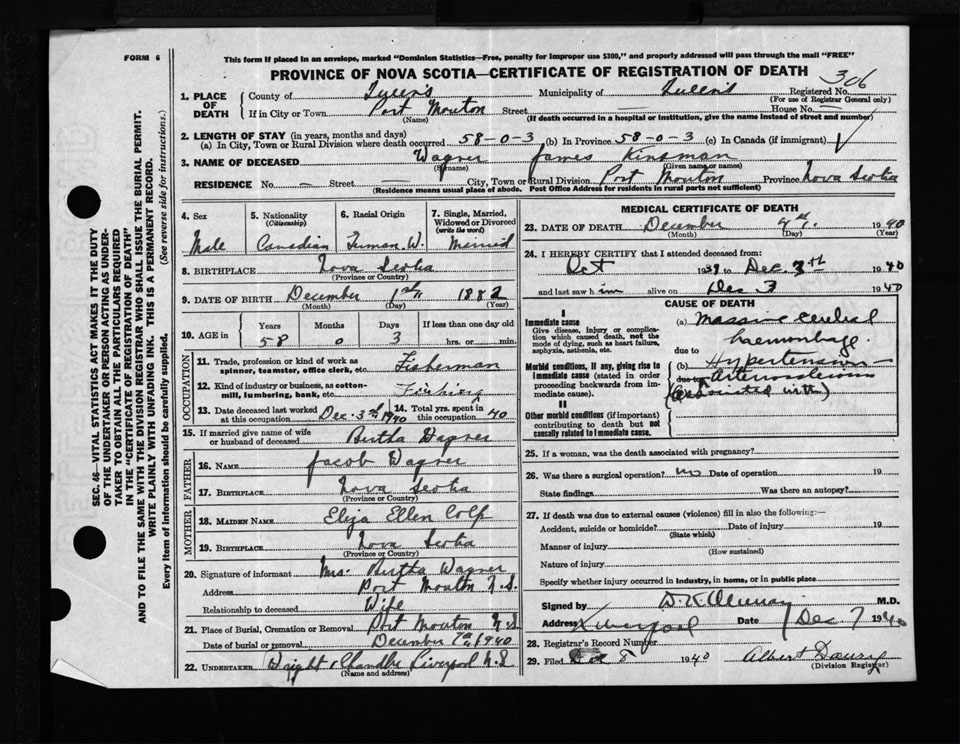 FORM 6
This form if placed in an envelope, marked "Dominion Statistics—Free, penalty for improper use $300," and properly addressed will pass through the mail "FREE"
PROVINCE OF NOVA SCOTIA—CERTIFICATE OF REGISTRATION OF DEATH
306
SEC. 46—VITAL STATISTICS ACT MAKES IT THE DUTY
OF THE UNDERTAKER OR PERSON ACTING AS UNDER-
TAKER TO OBTAIN ALL THE PARTICULARS REQUIRED
IN THE "CERTIFICATE OF REGISTRATION OF DEATH"
AND TO FILE THE SAME WITH THE DIVISION REGISTRAR WHO SHALL ISSUE THE BURIAL PERMIT.
WRITE PLAINLY WITH UNFADING INK. THIS IS A PERMANENT RECORD.
Every item of information should be carefully supplied. (See reverse side for instructions.)
1. PLACE OF DEATH
County of Queens Municipality of Queens Registered No.
(For use of Registrar General only)
If in City or Town Port Mouton Street — House No. —
(Name) (If death occurred in a hospital or institution, give the name instead of street and number)
2. LENGTH OF STAY (in years, months and days)
(a) In City, Town or Rural Division where death occurred 58-0-3 (b) In Province 58-0-3 (c) In Canada (if immigrant)
3. NAME OF DECEASED Wagner James Kinsman
(Surname) (Given name or names)
RESIDENCE No. — Street — City, Town or Rural Division Port Mouton Province Nova Scotia
(Residence means usual place of abode. Post Office Address for residents in rural parts not sufficient)
4. Sex Male
5. Nationality (Citizenship) Canadian
6. Racial Origin W.
7. Single, Married, Widowed or Divorced (write the word) Married
8. BIRTHPLACE Nova Scotia
(Province or Country)
9. DATE OF BIRTH December 1st 1882
(Month) (Day) (Year)
10. AGE in Years Months Days If less than one day old
58 0 3 hrs. or min.
OCCUPATION
11. Trade, profession or kind of work as
spinner, teamster, office clerk, etc. Fisherman
12. Kind of industry or business, as cotton-
mill, lumbering, bank, etc. Fishing
13. Date deceased last worked
at this occupation Dec. 3rd 1940
14. Total yrs. spent in
this occupation 40
15. If married give name of wife
or husband of deceased Bertha Wagner
FATHER
16. NAME Jacob Wagner
17. BIRTHPLACE Nova Scotia
(Province or Country)
MOTHER
18. MAIDEN NAME Eliza Ellen Colp
19. BIRTHPLACE Nova Scotia
(Province or Country)
20. Signature of informant Mrs. Bertha Wagner
Address Port Mouton N.S.
Relationship to deceased Wife
21. Place of Burial, Cremation or Removal Port Mouton N.S.
Date of burial or removal December 7th 1940
22. UNDERTAKER Wright & Chandler Liverpool N.S
(Name and address)
MEDICAL CERTIFICATE OF DEATH
23. DATE OF DEATH December 4th. 1940
(Month) (Day) (Year)
24. I HEREBY CERTIFY that I attended deceased from:
Oct 1939 to Dec 3th 1940
and last saw him alive on Dec 3 1940
CAUSE OF DEATH
I
Immediate cause
Give disease, injury or complica-
tion which caused death, not the
mode of dying, such as heart failure,
asphyxia, asthenia, etc.
(a) Massive cerebral
haemorrhage
due to
Morbid conditions, if any, giving rise to
immediate cause (stated in order
proceeding backwards from im-
mediate cause).
(b) Hypertension
due to Arteriosclerosis
(associated with)
II
Other morbid conditions (if important)
contributing to death but not
causally related to immediate cause.
25. If a woman, was the death associated with pregnancy?
26. Was there a surgical operation? no Date of operation 19
State findings Was there an autopsy?
27. If death was due to external causes (violence) fill in also the following:—
Accident, suicide or homicide? Date of injury 19
(State which)
Manner of injury
(How sustained)
Nature of injury
Specify whether injury occurred in industry, in home, or in public place
Signed by M.D.
Address Liverpool Date Dec 7 1940
28. Registrar's Record Number
29. Filed Dec 8 1940 Albert
(Division Registrar)